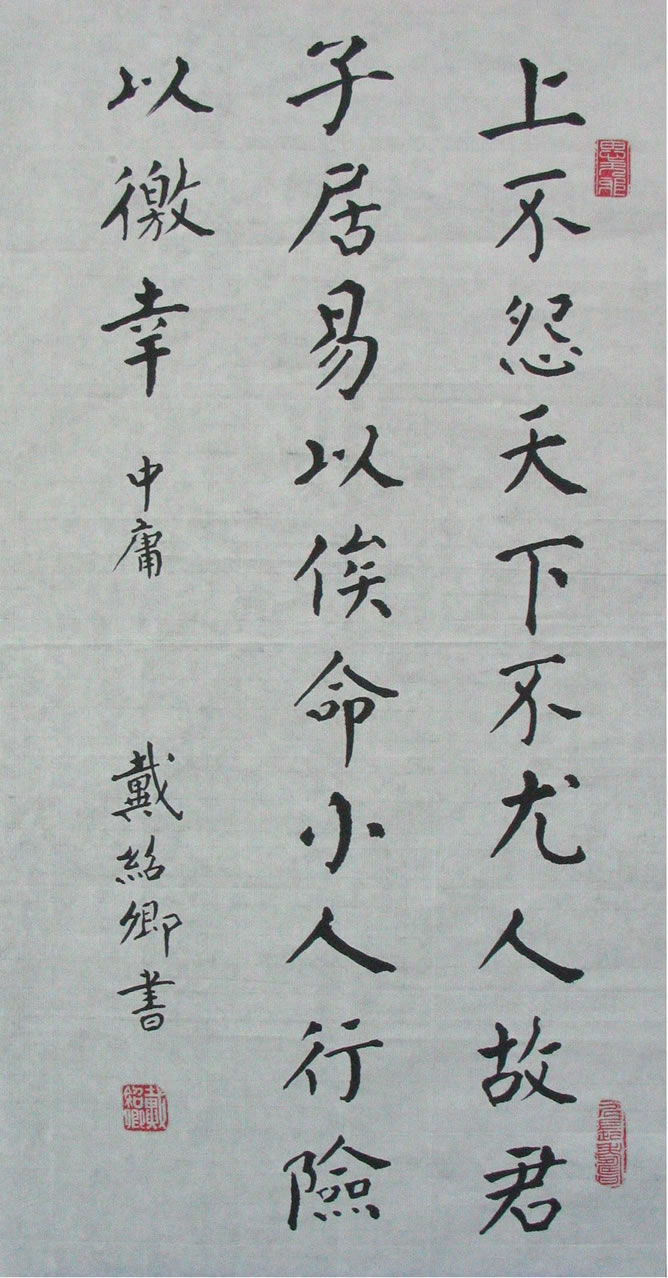 上不怨天下不尤人故君
子居易以俟命小人行險
以徼幸 中庸 戴紹卿書
思無邪
戴紹卿